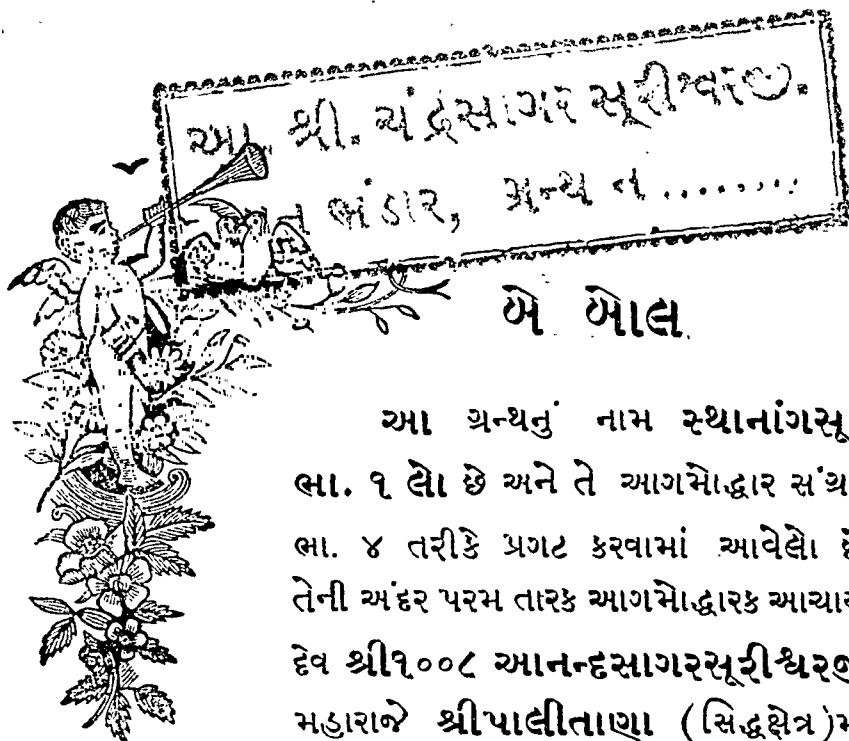 આ. શ્રી. ચંદ્રસાગર સૂરીશ્વરજી.
ન ભંડાર, ગ્રન્થ નં ........
બે બોલ
આ ગ્રન્થનું નામ સ્થાનાંગસૂ
ભા. ૧ લો છે અને તે આગમોદ્ધાર સંગ્ર
ભા. ૪ તરીકે પ્રગટ કરવામાં આવેલો છે
તેની અંદર પરમ તારક આગમોદ્ધારક આચાર
દેવ શ્રી૧૦૦૮ આનન્દસાગરસૂરીશ્વરજી
મહારાજે શ્રીપાલીતાણા (સિદ્ધક્ષેત્ર)મ